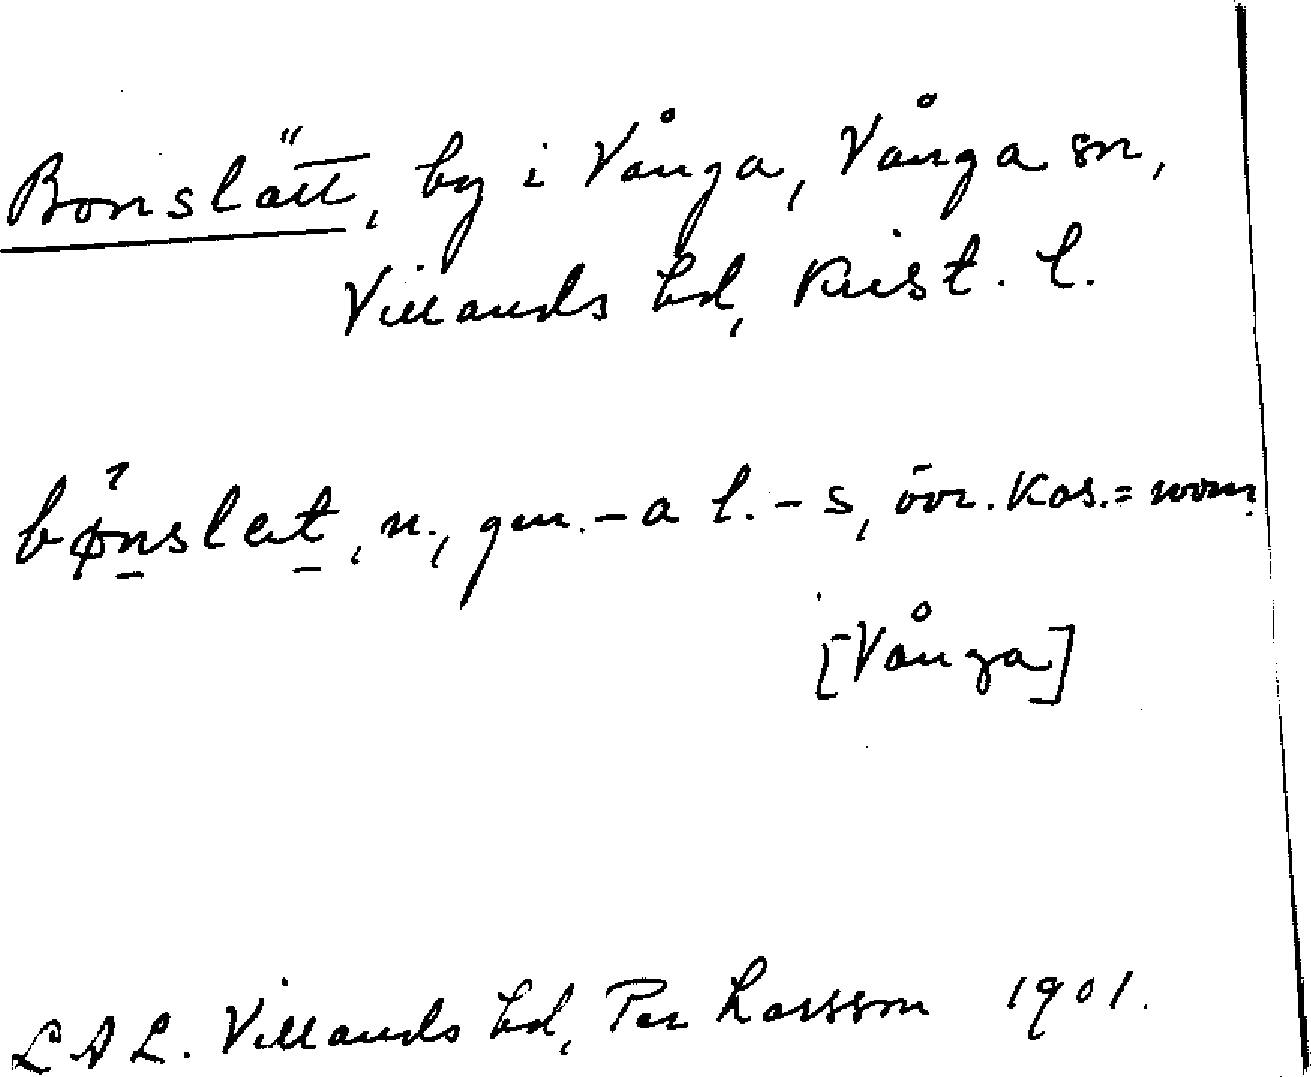 Bonslätt, by i Vånga, Vånga sn,
Villands hd, Krist. l.
bønslat, n., gen. -a l. -s, övr. kas. = nom.
[Vånga]
LAL. Villands hd, Per Larsson 1901.